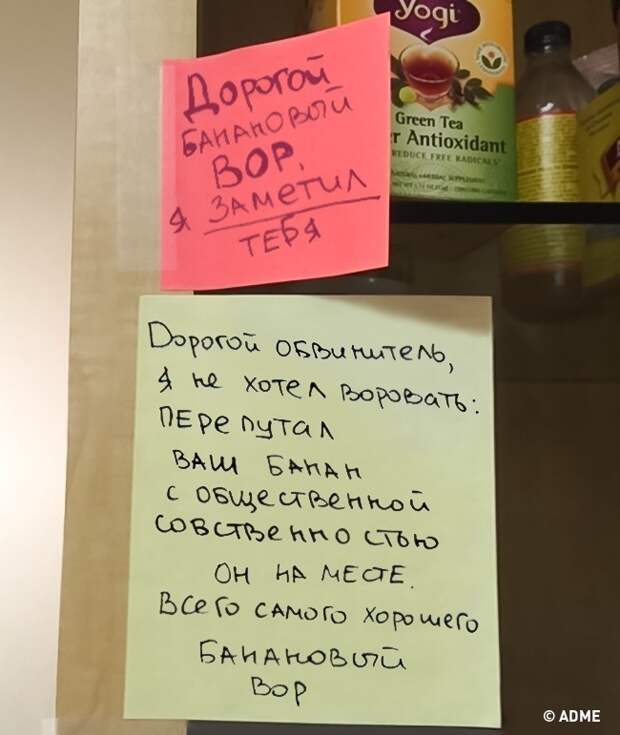 Дорогой
БАНАНОВЫЙ
ВОР,
я ЗАМЕТИЛ
ТЕБЯ
Yogi
Green Tea
r Antioxidant
REDUCE FREE RADICALS
Дорогой обвинитель,
я не хотел воровать:
ПЕРЕПУТАЛ
ВАШ БАНАН
с общественной
собственностью
ОН НА МЕСТЕ.
Всего самого хорошего
БАНАНОВЫЙ
Вор
© ADME